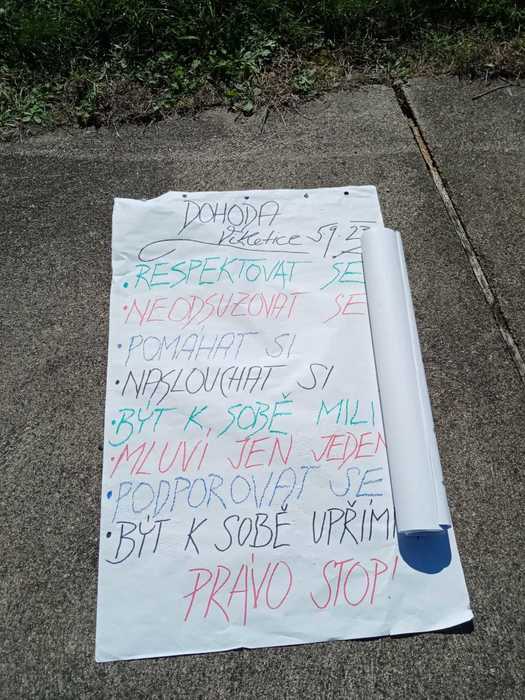 DOHODA
Vikletice 5.9. 23
• RESPEKTOVAT SE
• NEODSUZOVAT SE
• POMÁHAT SI
• NASLOUCHAT SI
• BÝT K SOBĚ MILÍ
• MLUVÍ JEN JEDEN
• PODPOROVAT SE
• BÝT K SOBĚ UPŘÍM
PRÁVO STOP!